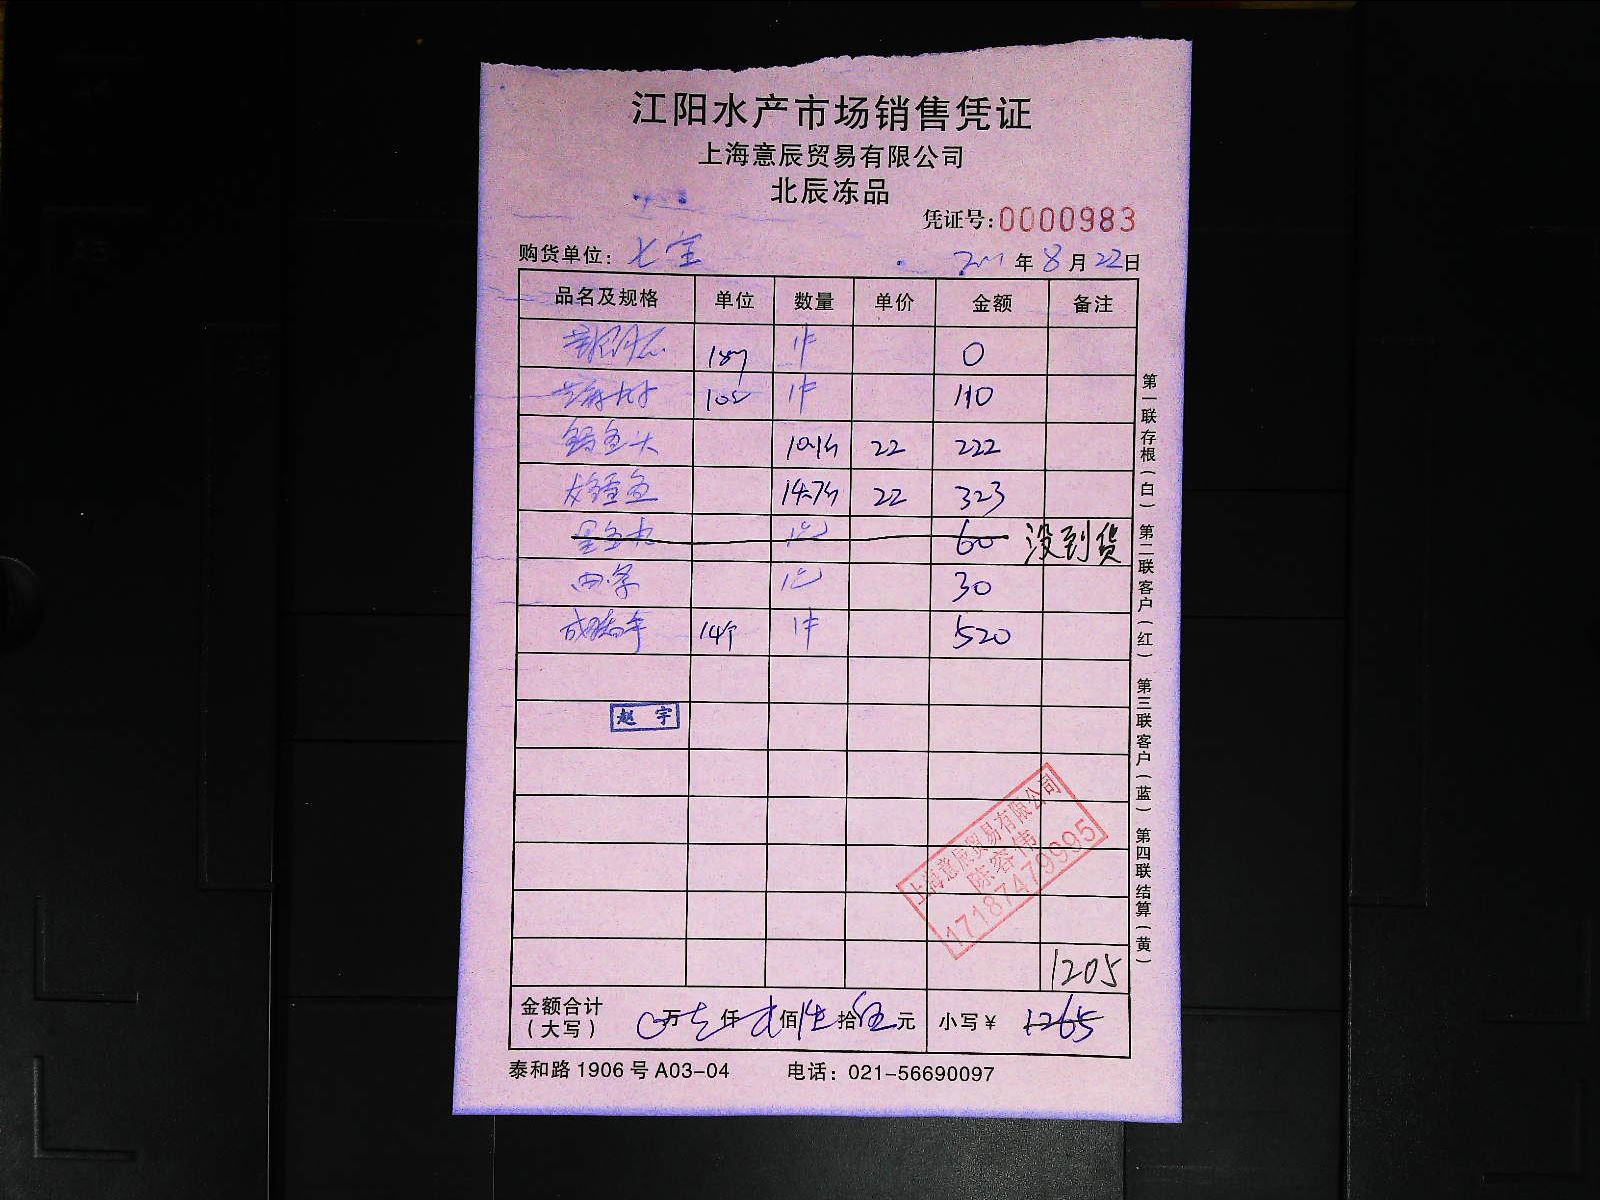 江阳水产市场销售凭证
上海意辰贸易有限公司
北辰冻品
凭证号:0000983
购货单位: 七宝 年 8 月 22 日
品名及规格 单位 数量 单价 金额 备注
1件 0
1件 110
鱼头 10.1斤 22 222
鱼 14.7斤 22 323
1包 60 没到货
1包 30
14个 1件 520
赵宇
上海意辰贸易有限公司
陈容伟
17187479995
1205
金额合计(大写) 0万 仟 佰 陆拾 伍元 小写¥ 1265
泰和路1906号A03-04 电话: 021-56690097
第一联存根(白) 第二联客户(红) 第三联客户(蓝) 第四联结算(黄)